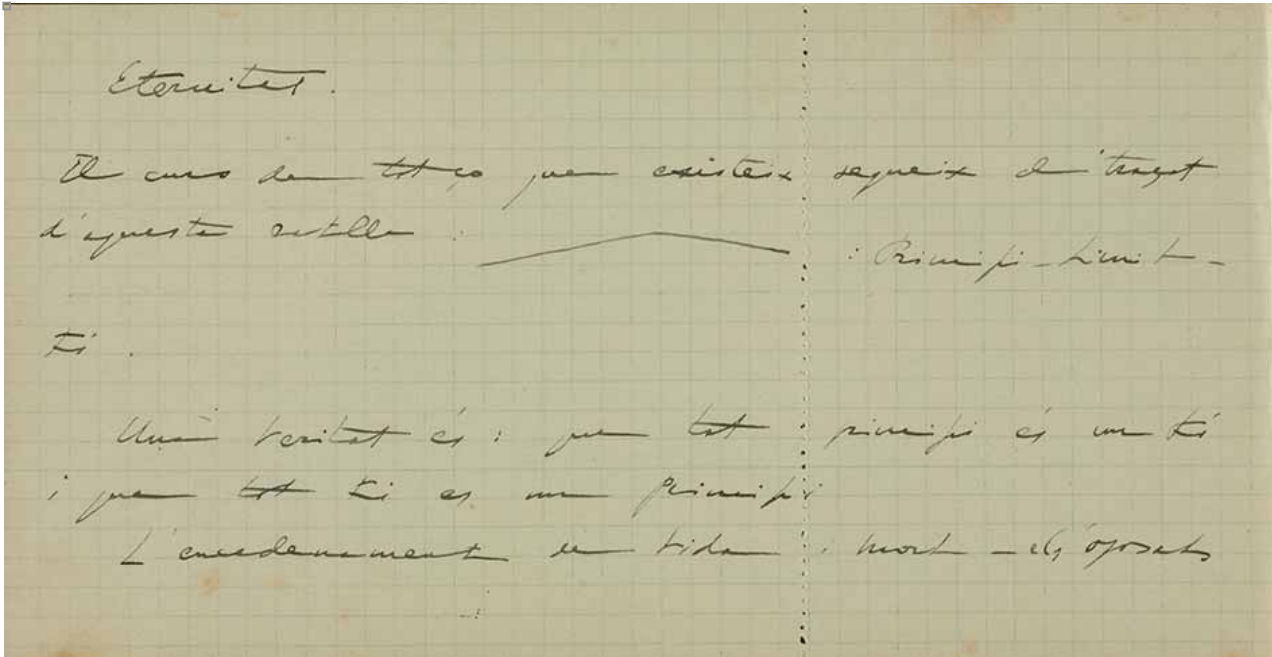 Eternitat.
El curs de tot ço que existeix segueix el traçat
d'aquesta ratlla : : Principi – Límit –
Fi .
Una veritat és : que tot principi és un fi
i que tot fi es un principi
L'encadenament de vida i mort – els oposats